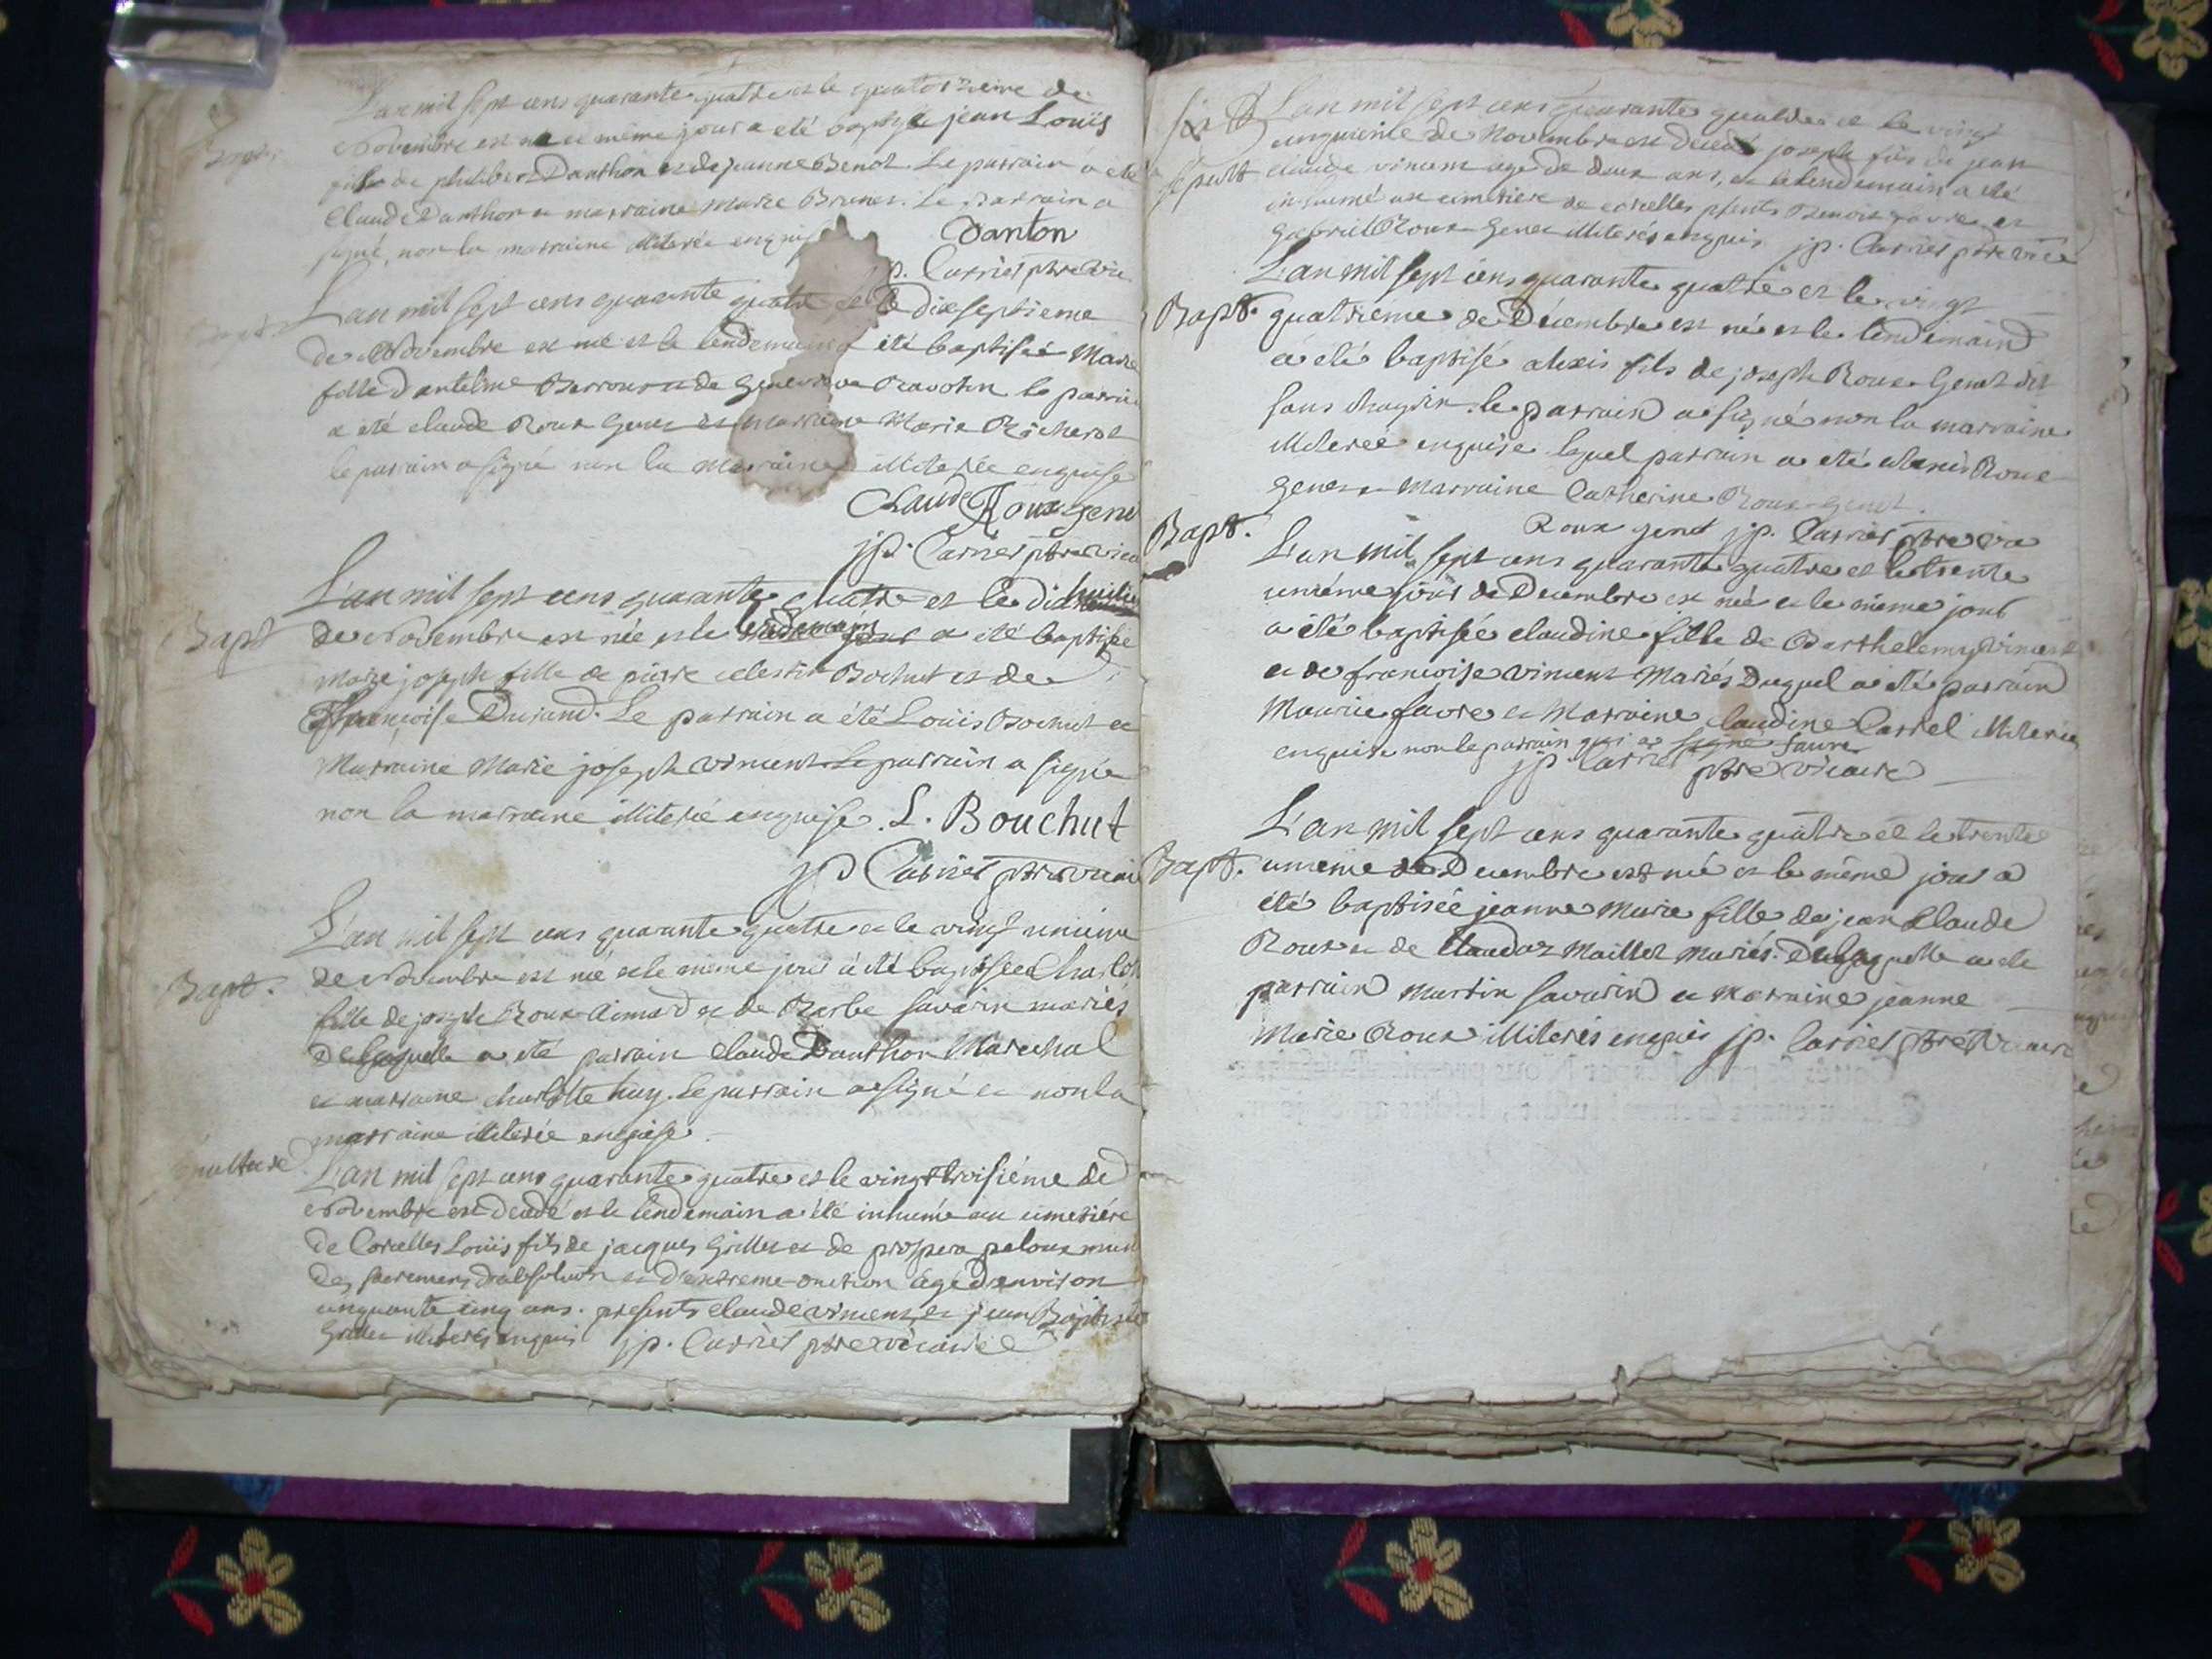 L'an mil sept cens quarante quatre et le quatorzieme de
Bapt.
Novembre est né ce même jour a eté baptisé jean Louïs
fils de philibert Danthon et de jeanne Benot Le parrain a eté
Claude Danthon et marraine Marie Brunet. Le parrain a
signé, non la marraine illiterée enquise
Danton
jp. Carrier ptre vic
L'an mil sept cens quarante quatre et le dixseptieme
Bapt.
de Novembre est née et le lendemain a été baptisée Marie
fille d'antelme et de genevieve le parrain
a été claude Roux genet et marraine Marie
le parrain a signé non la Marraine illiterée enquise
Claude Roux genet
jp. Carrier ptre vicai
L'an mil sept cens quarante quatre et le dixhuitie
Bapt
de Novembre est née et le lendemain a été baptisée
marie joseph fille de pierre celestin Bochut et de
françoise Durand. Le parrain a été Louïs Bochut et
Marraine Marie joseph vincent Le parrain a signée
non la marraine illiterée enquise. L. Bouchut
jp Carrier ptre vicai
L'an mil sept cens quarante quatre et le vingt unieme
Bapt.
de Novembre est née et le même jour a été baptisée Charlote
fille de joseph Roux Aimard et de Barbe savarin mariés
De laquelle a eté parrain claude Danthon Marechal
et marraine charlotte huy. Le parrain a signé et non la
marraine illiterée enquise.
sepulture
L'an mil sept cens quarante quatre et le vingt troisiéme de
Novembre est decedé et le lendemain a été inhumé au cimetiére
de Corcelles Louïs fils de jacques Grillet et de prospera peloux muni
des sacremens d'absolution et d'extreme-onction âgé d'environ
cinquante cinq ans. presents claude vincent et jean Baptiste
Grillet illiterés enquis jp. Carrier ptre vicaire
L'an mil sept cens quarante quatre et le vingt
cinquieme de Novembre est decedé joseph fils de jean
Sepult
claude vincent agé de deux ans, et le lendemain a eté
inhumé au cimetiere de corcelles psents Benoit favre et
gabriel Roux Genet illiterés enquis jp. Carrier ptre vice
L'an mil sept cens quarante quatre et le vingt
Bapt. quatriéme de Decembre est né et le lendemain
a eté baptisé alexis fils de joseph Roux Genet dit
sans chagrin. le parrain a signé non la marraine
illiterée enquise. lequel parrain a eté alexis Roux
genet et Marraine Catherine Roux-genet.
Roux genet jp. Carrier ptre vic
Bapt.
L'an mil sept cens quarante quatre et le trente
uniéme jour de Decembre est née et le même jour
a été baptisée claudine fille de Barthelemy vincent
et de françoise vincent Mariés Duquel a été parrain
Maurice favre et Marraine claudine Carrel illiterée
enquise non le parrain qui a signé faure
jp. Carrier ptre vicaire
L'an mil sept cens quarante quatre et le trente
Bapt. unieme de Decembre est née et le même jour a
été baptisée jeanne Marie fille de jean Claude
Roux et de Claudaz Maillet Mariés. De laquelle a été
parrain Martin savarin et Marraine jeanne
Marie Roux illiterés enquis jp. Carrier ptre vicaire